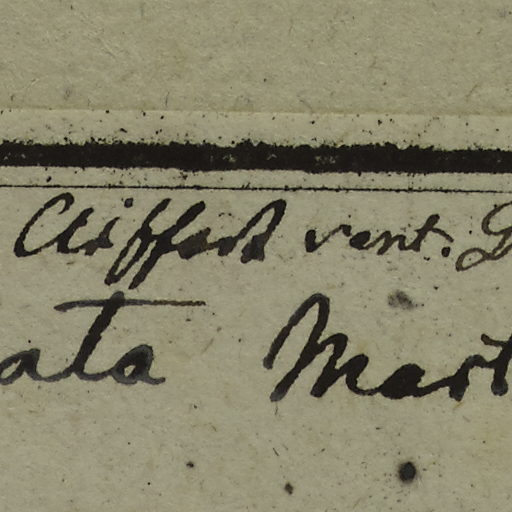 Cliffort vent. G
ata Mart